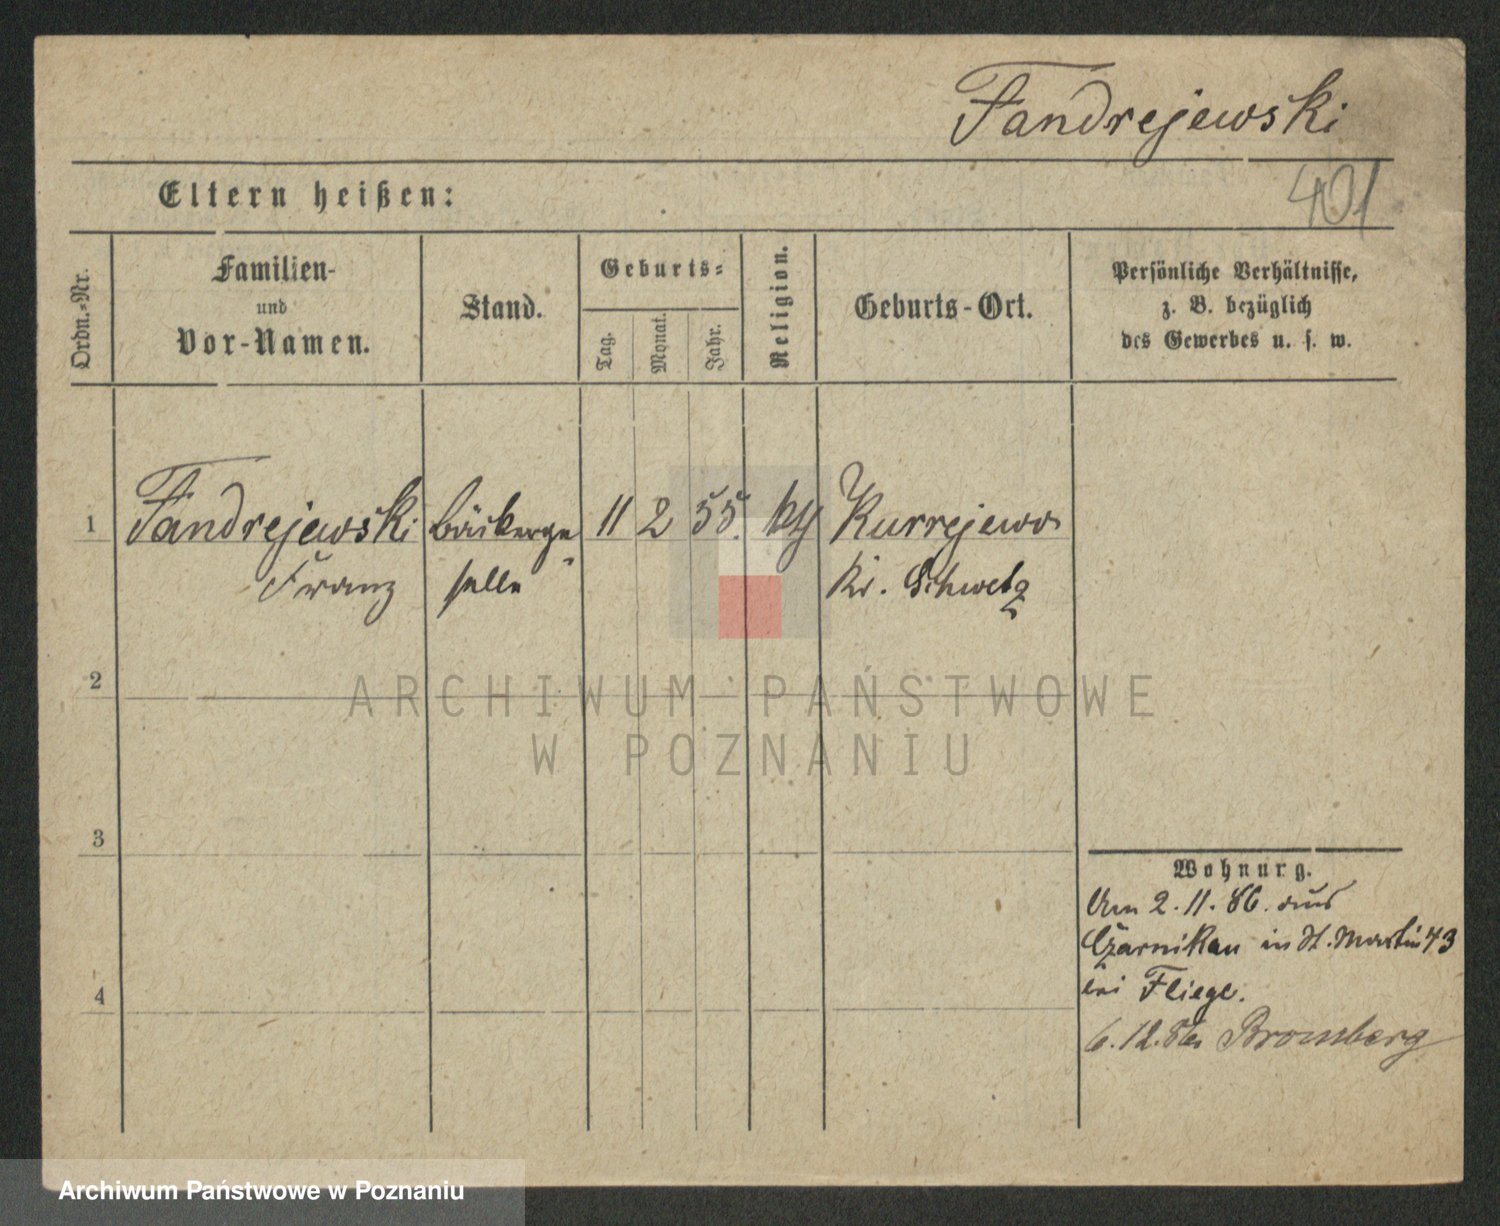 Fandrejewski
401
Eltern heißen:
Ordn.-Nr.
Familien-
und
Vor-Namen.
Stand.
Geburts-
Tag.
Monat.
Jahr.
Religion.
Geburts-Ort.
Persönliche Verhältnisse,
z. B. bezüglich
des Gewerbes u. s. w.
1 Fandrejewski Bäckerge 11 2 55. kth Kurrejewo
Franz selle Kr. Schwetz
2
ARCHIWUM PAŃSTWOWE
W POZNANIU
3
Wohnung.
Am 2.11.86. aus
Czarnikau in St. Martin 43
bei Fliege.
4
6.12.86 Bromberg
Archiwum Państwowe w Poznaniu